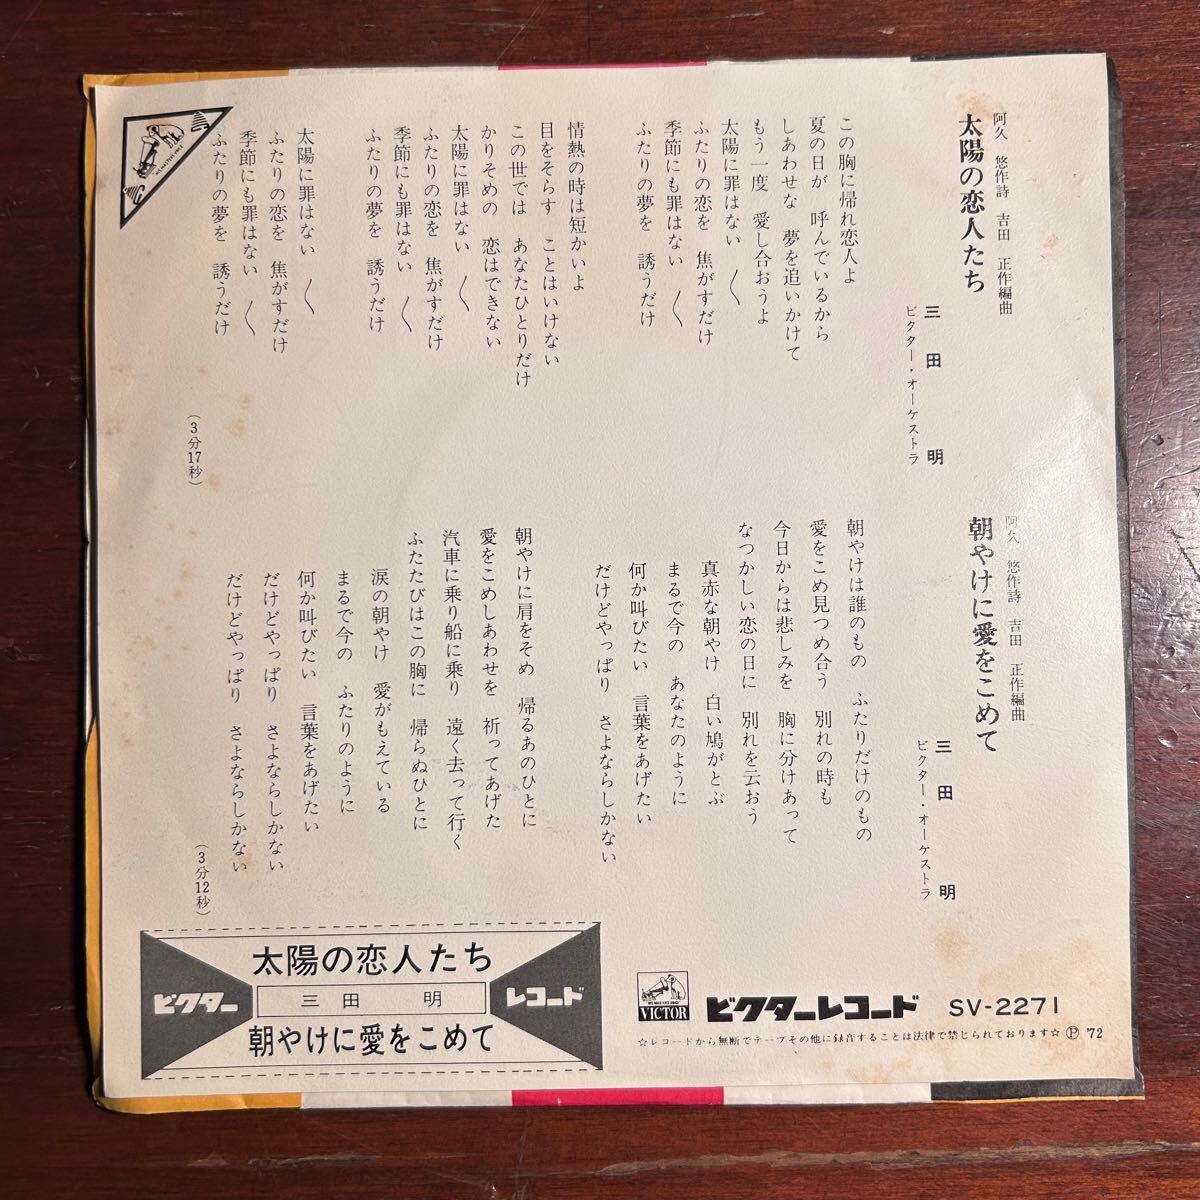 阿久 悠作詩 吉田 正作編曲
太陽の恋人たち
三田 明
ビクター・オーケストラ
この胸に帰れ恋人よ
夏の日が 呼んでいるから
しあわせな 夢を追いかけて
もう一度 愛し合おうよ
太陽に罪はない 〱
ふたりの恋を 焦がすだけ
季節にも罪はない 〱
ふたりの夢を 誘うだけ
情熱の時は短かいよ
目をそらす ことはいけない
この世では あなたひとりだけ
かりそめの 恋はできない
太陽に罪はない 〱
ふたりの恋を 焦がすだけ
季節にも罪はない 〱
ふたりの夢を 誘うだけ
太陽に罪はない 〱
ふたりの恋を 焦がすだけ
季節にも罪はない 〱
ふたりの夢を 誘うだけ
(3分17秒)
阿久 悠作詩 吉田 正作編曲
朝やけに愛をこめて
三田 明
ビクター・オーケストラ
朝やけは誰のもの ふたりだけのもの
愛をこめ見つめ合う 別れの時も
今日からは悲しみを 胸に分けあって
なつかしい恋の日に 別れを云おう
真赤な朝やけ 白い鳩がとぶ
まるで今の あなたのように
何か叫びたい 言葉をあげたい
だけどやっぱり さよならしかない
朝やけに肩をそめ 帰るあのひとに
愛をこめしあわせを 祈ってあげた
汽車に乗り船に乗り 遠く去って行く
ふたたびはこの胸に 帰らぬひとに
涙の朝やけ 愛がもえている
まるで今の ふたりのように
何か叫びたい 言葉をあげたい
だけどやっぱり さよならしかない
だけどやっぱり さよならしかない
(3分12秒)
太陽の恋人たち
ビクター
三田 明
レコード
朝やけに愛をこめて
VICTOR
ビクターレコード SV-2271
☆レコードから無断でテープその他に録音することは法律で禁じられております☆ Ⓟ '72